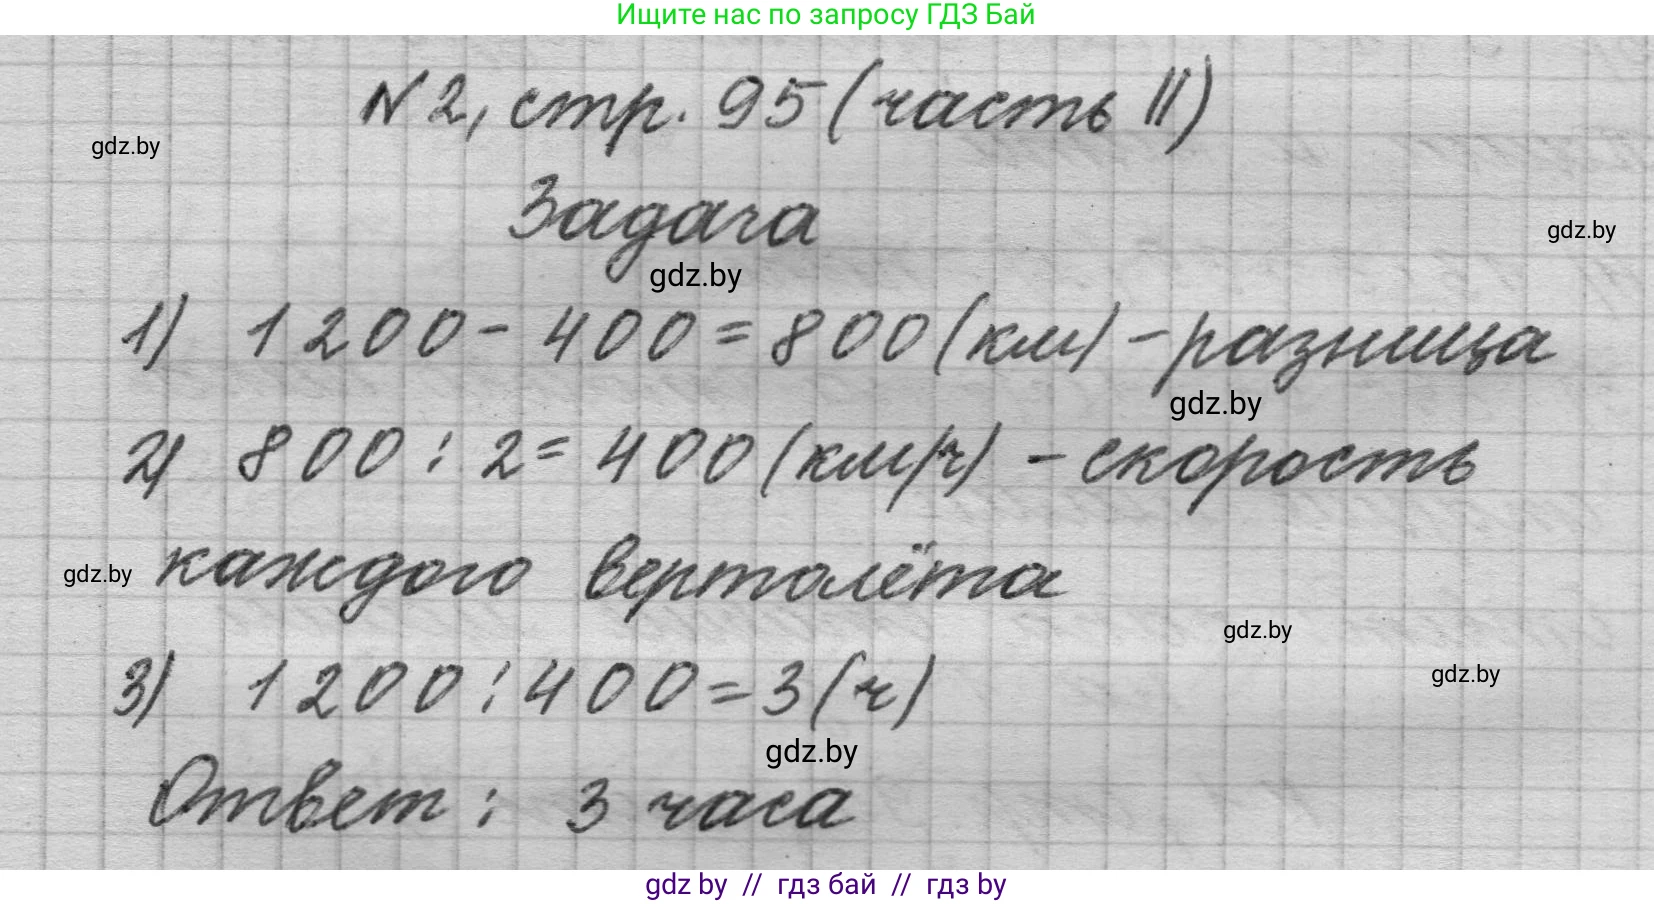 Ищите нас по запросу ГДЗ Бай
N2, стр. 95 (часть II)
gdz.by
Задача
gdz.by
gdz.by
1) 1200 - 400 = 800 (км) - разница
gdz.by
2) 800 : 2 = 400 (км/ч) - скорость
gdz.by каждого вертолёта
gdz.by
3) 1200 : 400 = 3 (ч)
gdz.by
gdz.by
Ответ : 3 часа
gdz by // гдз бай // гдз by